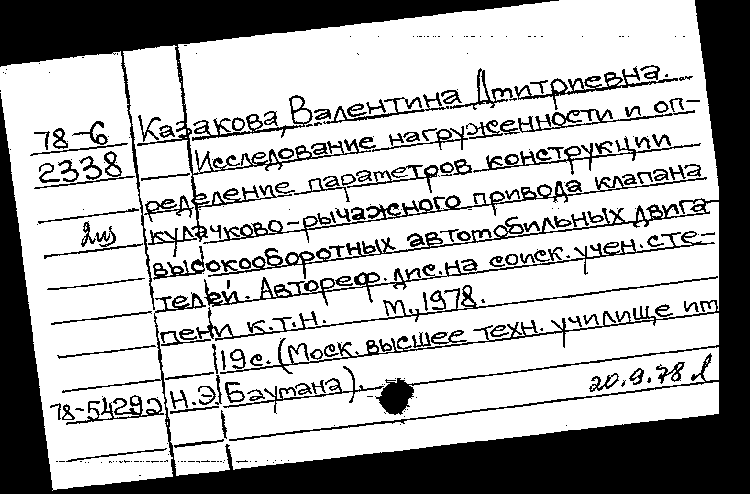 78-6 Казакова, Валентина Дмитриевна.
2338 Исследование нагруженности и оп-
ределение параметров конструкции
2из кулачково-рычажного привода клапана
высокооборотных автомобильных двига
телей. Автореф. дис. на соиск. учен. сте-
пени к.т.н. М., 1978.
19с. (Моск. высшее техн. училище им
78-54292 Н.Э. Баумана).
20.9.78 л